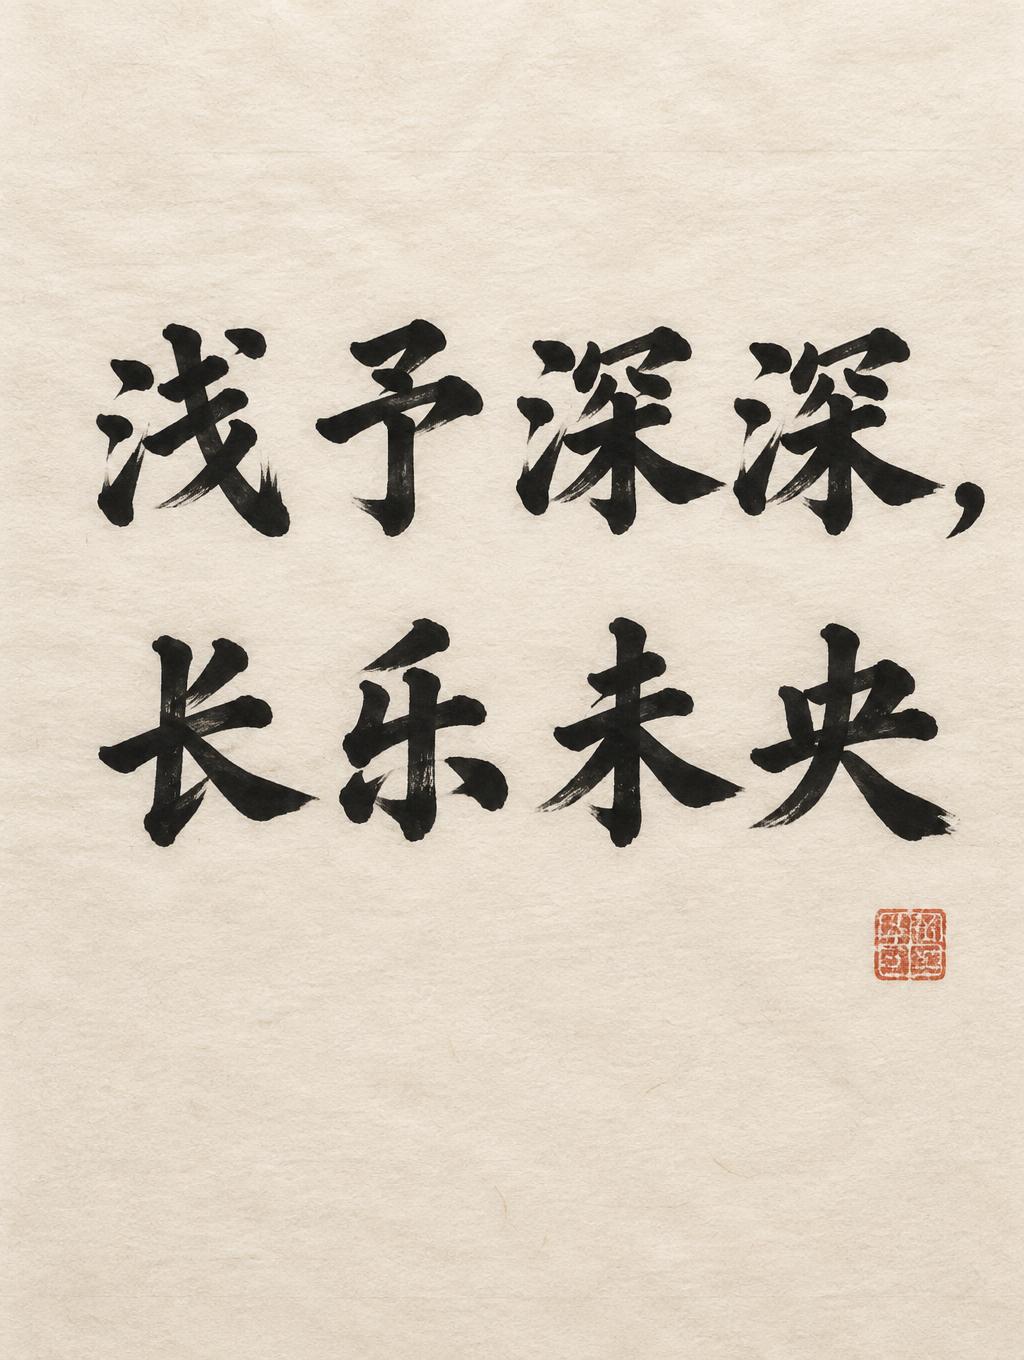 浅予深深,
长乐未央